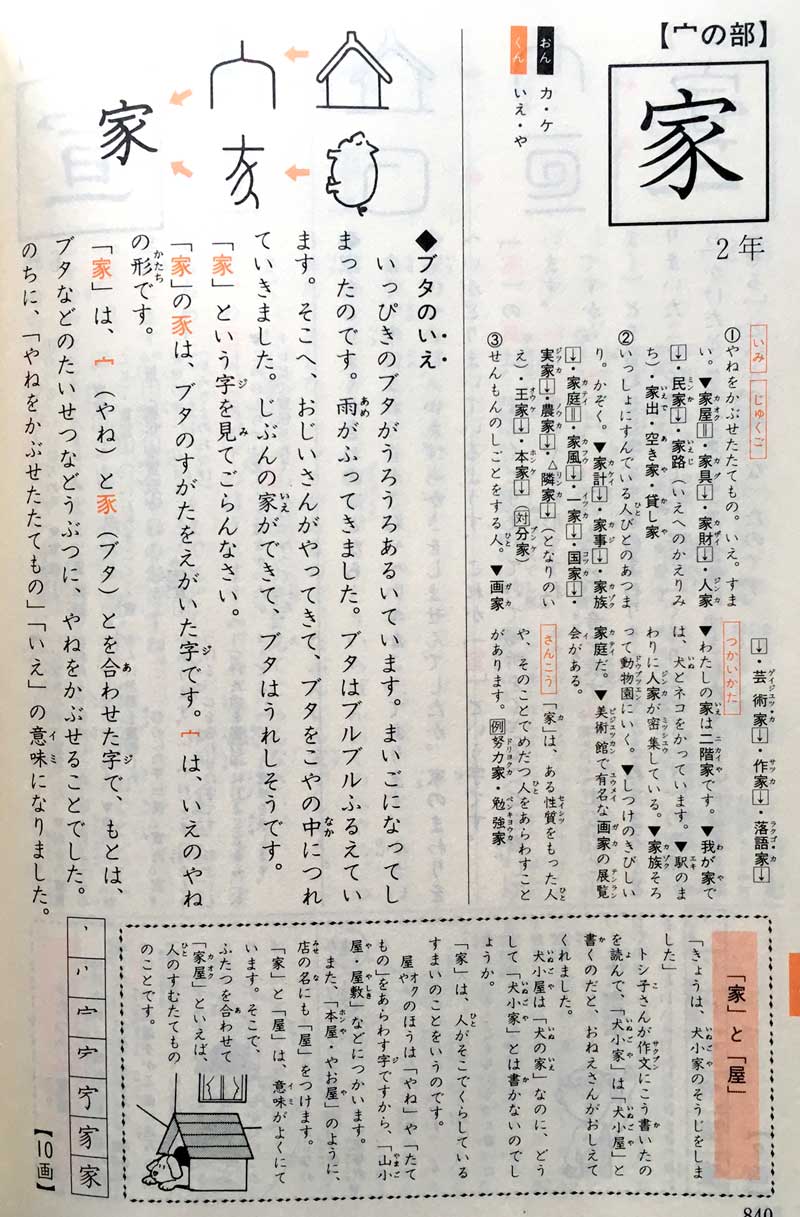 【宀の部】
家
2年
おん カ・ケ
くん いえ・や
いみ じゅくご
①やねをかぶせたたてもの。いえ。すま
い。▼家屋〓・家具↓・家財↓・人家
↓・民家↓・家路(いえへのかえりみ
ち)・家出・空き家・貸し家
②いっしょにすんでいる人びとのあつま
り。かぞく。▼家計↓・家事↓・家族
↓・家庭〓・家風↓・一家↓・国家↓・
実家↓・農家↓・△隣家↓(となりのい
え)・王家↓・本家↓(対分家)
③せんもんのしごとをする人。▼画家
↓・芸術家↓・作家↓・落語家↓
つかいかた
▼わたしの家は二階家です。▼我が家で
は、犬とネコをかっています。▼駅のま
わりに人家が密集している。▼家族そろ
って動物園にいく。▼しつけのきびしい
家庭だ。▼美術館で有名な画家の展覧
会がある。
さんこう 「家」は、ある性質をもった人
や、そのことでめだつ人をあらわすこと
があります。例努力家・勉強家
家
◆ブタのいえ
いっぴきのブタがうろうろあるいています。まいごになってし
まったのです。雨がふってきました。ブタはブルブルふるえてい
ます。そこへ、おじいさんがやってきて、ブタをこやの中につれ
ていきました。じぶんの家ができて、ブタはうれしそうです。
「家」という字を見てごらんなさい。
「家」の豕は、ブタのすがたをえがいた字です。宀は、いえのやね
の形です。
「家」は、宀(やね)と豕(ブタ)とを合わせた字で、もとは、
ブタなどのたいせつなどうぶつに、やねをかぶせることでした。
のちに、「やねをかぶせたたてもの」「いえ」の意味になりました。
「家」と「屋」
「きょうは、犬小家のそうじをしま
した」
トシ子さんが作文にこう書いたの
を読んで、「犬小家」は「犬小屋」と
書くのだと、おねえさんがおしえて
くれました。
犬小屋は「犬の家」なのに、どう
して「犬小家」とは書かないのでし
ょうか。
「家」は、人がそこでくらしている
すまいのことをいうのです。
屋のほうは「やね」や「たて
もの」をあらわす字ですから、「山小
屋・屋敷」などにつかいます。
また、「本屋・やお屋」のように、
店の名にも「屋」をつけます。
「家」と「屋」は、意味がよくにて
います。そこで、
ふたつを合わせて
「家屋」といえば、
人のすむたてもの
のことです。
家 家
【10画】
840